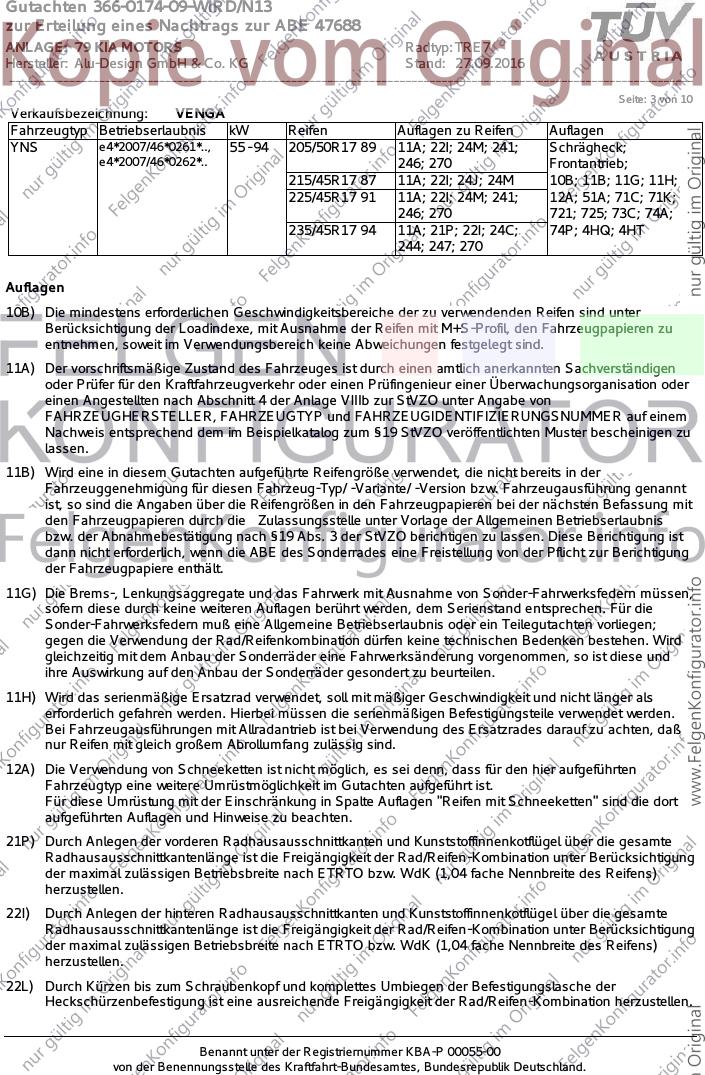 Gutachten 366-0174-09-WIRD/N13
zur Erteilung eines Nachtrags zur ABE 47688
ANLAGE: 79 KIA MOTORS
Hersteller: Alu-Design GmbH & Co. KG
Radtyp: TRE7
Stand: 27.09.2016
TÜV
AUSTRIA
Kopie vom Original
Seite: 3 von 10
Verkaufsbezeichnung: VENGA
Fahrzeugtyp Betriebserlaubnis kW Reifen Auflagen zu Reifen Auflagen
YNS e4*2007/46*0261*.., 55-94 205/50R17 89 11A; 22I; 24M; 241; Schrägheck;
e4*2007/46*0262*.. 246; 270 Frontantrieb;
215/45R17 87 11A; 22I; 24J; 24M 10B; 11B; 11G; 11H;
225/45R17 91 11A; 22I; 24M; 241; 12A; 51A; 71C; 71K;
246; 270 721; 725; 73C; 74A;
235/45R17 94 11A; 21P; 22I; 24C; 74P; 4HQ; 4HT
244; 247; 270
Auflagen
10B) Die mindestens erforderlichen Geschwindigkeitsbereiche der zu verwendenden Reifen sind unter
Berücksichtigung der Loadindexe, mit Ausnahme der Reifen mit M+S-Profil, den Fahrzeugpapieren zu
entnehmen, soweit im Verwendungsbereich keine Abweichungen festgelegt sind.
11A) Der vorschriftsmäßige Zustand des Fahrzeuges ist durch einen amtlich anerkannten Sachverständigen
oder Prüfer für den Kraftfahrzeugverkehr oder einen Prüfingenieur einer Überwachungsorganisation oder
einen Angestellten nach Abschnitt 4 der Anlage VIIIb zur StVZO unter Angabe von
FAHRZEUGHERSTELLER, FAHRZEUGTYP und FAHRZEUGIDENTIFIZIERUNGSNUMMER auf einem
Nachweis entsprechend dem im Beispielkatalog zum §19 StVZO veröffentlichten Muster bescheinigen zu
lassen.
11B) Wird eine in diesem Gutachten aufgeführte Reifengröße verwendet, die nicht bereits in der
Fahrzeuggenehmigung für diesen Fahrzeug-Typ/ -Variante/ -Version bzw. Fahrzeugausführung genannt
ist, so sind die Angaben über die Reifengrößen in den Fahrzeugpapieren bei der nächsten Befassung mit
den Fahrzeugpapieren durch die Zulassungsstelle unter Vorlage der Allgemeinen Betriebserlaubnis
bzw. der Abnahmebestätigung nach §19 Abs. 3 der StVZO berichtigen zu lassen. Diese Berichtigung ist
dann nicht erforderlich, wenn die ABE des Sonderrades eine Freistellung von der Pflicht zur Berichtigung
der Fahrzeugpapiere enthält.
11G) Die Brems-, Lenkungsaggregate und das Fahrwerk mit Ausnahme von Sonder-Fahrwerksfedern müssen,
sofern diese durch keine weiteren Auflagen berührt werden, dem Serienstand entsprechen. Für die
Sonder-Fahrwerksfedern muß eine Allgemeine Betriebserlaubnis oder ein Teilegutachten vorliegen;
gegen die Verwendung der Rad/Reifenkombination dürfen keine technischen Bedenken bestehen. Wird
gleichzeitig mit dem Anbau der Sonderräder eine Fahrwerksänderung vorgenommen, so ist diese und
ihre Auswirkung auf den Anbau der Sonderräder gesondert zu beurteilen.
11H) Wird das serienmäßige Ersatzrad verwendet, soll mit mäßiger Geschwindigkeit und nicht länger als
erforderlich gefahren werden. Hierbei müssen die serienmäßigen Befestigungsteile verwendet werden.
Bei Fahrzeugausführungen mit Allradantrieb ist bei Verwendung des Ersatzrades darauf zu achten, daß
nur Reifen mit gleich großem Abrollumfang zulässig sind.
12A) Die Verwendung von Schneeketten ist nicht möglich, es sei denn, dass für den hier aufgeführten
Fahrzeugtyp eine weitere Umrüstmöglichkeit im Gutachten aufgeführt ist.
Für diese Umrüstung mit der Einschränkung in Spalte Auflagen "Reifen mit Schneeketten" sind die dort
aufgeführten Auflagen und Hinweise zu beachten.
21P) Durch Anlegen der vorderen Radhausausschnittkanten und Kunststoffinnenkotflügel über die gesamte
Radhausausschnittkantenlänge ist die Freigängigkeit der Rad/Reifen-Kombination unter Berücksichtigung
der maximal zulässigen Betriebsbreite nach ETRTO bzw. WdK (1,04 fache Nennbreite des Reifens)
herzustellen.
22I) Durch Anlegen der hinteren Radhausausschnittkanten und Kunststoffinnenkotflügel über die gesamte
Radhausausschnittkantenlänge ist die Freigängigkeit der Rad/Reifen-Kombination unter Berücksichtigung
der maximal zulässigen Betriebsbreite nach ETRTO bzw. WdK (1,04 fache Nennbreite des Reifens)
herzustellen.
22L) Durch Kürzen bis zum Schraubenkopf und komplettes Umbiegen der Befestigungslasche der
Heckschürzenbefestigung ist eine ausreichende Freigängigkeit der Rad/Reifen-Kombination herzustellen.
Benannt unter der Registriernummer KBA-P 00055-00
von der Benennungsstelle des Kraftfahrt-Bundesamtes, Bundesrepublik Deutschland.
FELGEN
KONFIGURATOR
FelgenKonfigurator.info
nur gültig im Original
www.FelgenKonfigurator.info